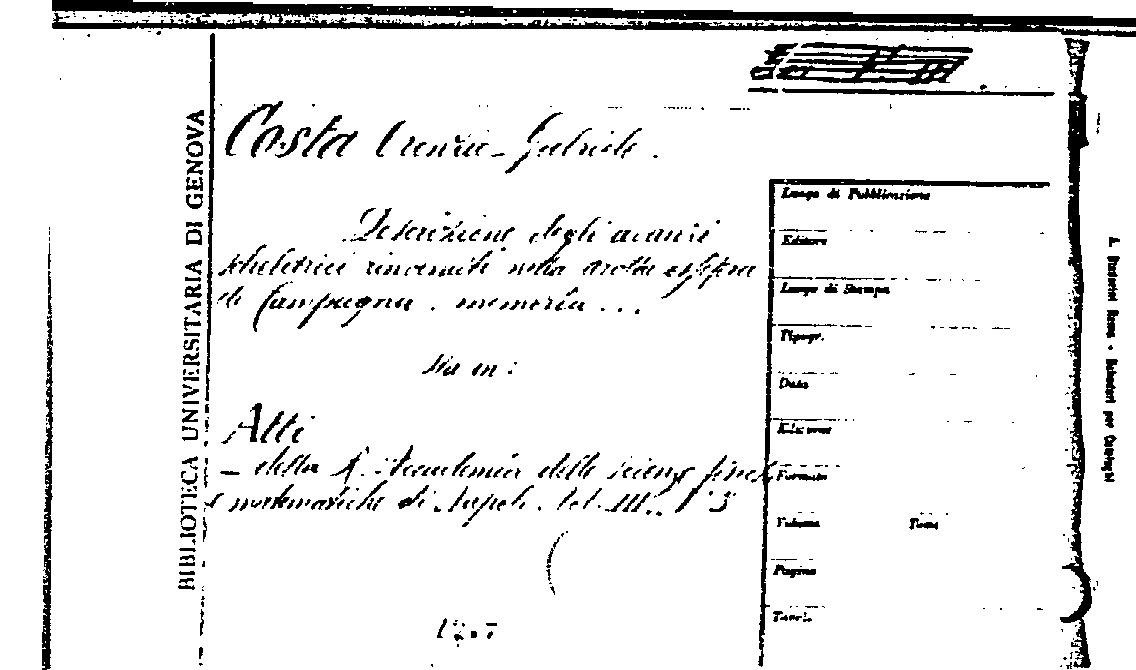 BIBLIOTECA UNIVERSITARIA DI GENOVA
Costa Oronzio-Gabriele.
Descrizione degli avanzi
scheletrici rinvenuti nella grotta
di Campagna. memoria ...
Sta in:
Atti
- della R. Accademia delle scienze fisiche
e matematiche di Napoli. Vol. III.
Luogo di Pubblicazione
Editore
Luogo di Stampa
Tipogr.
Data
Edizione
Formato
Volume Tomo
Pagine
Tavole